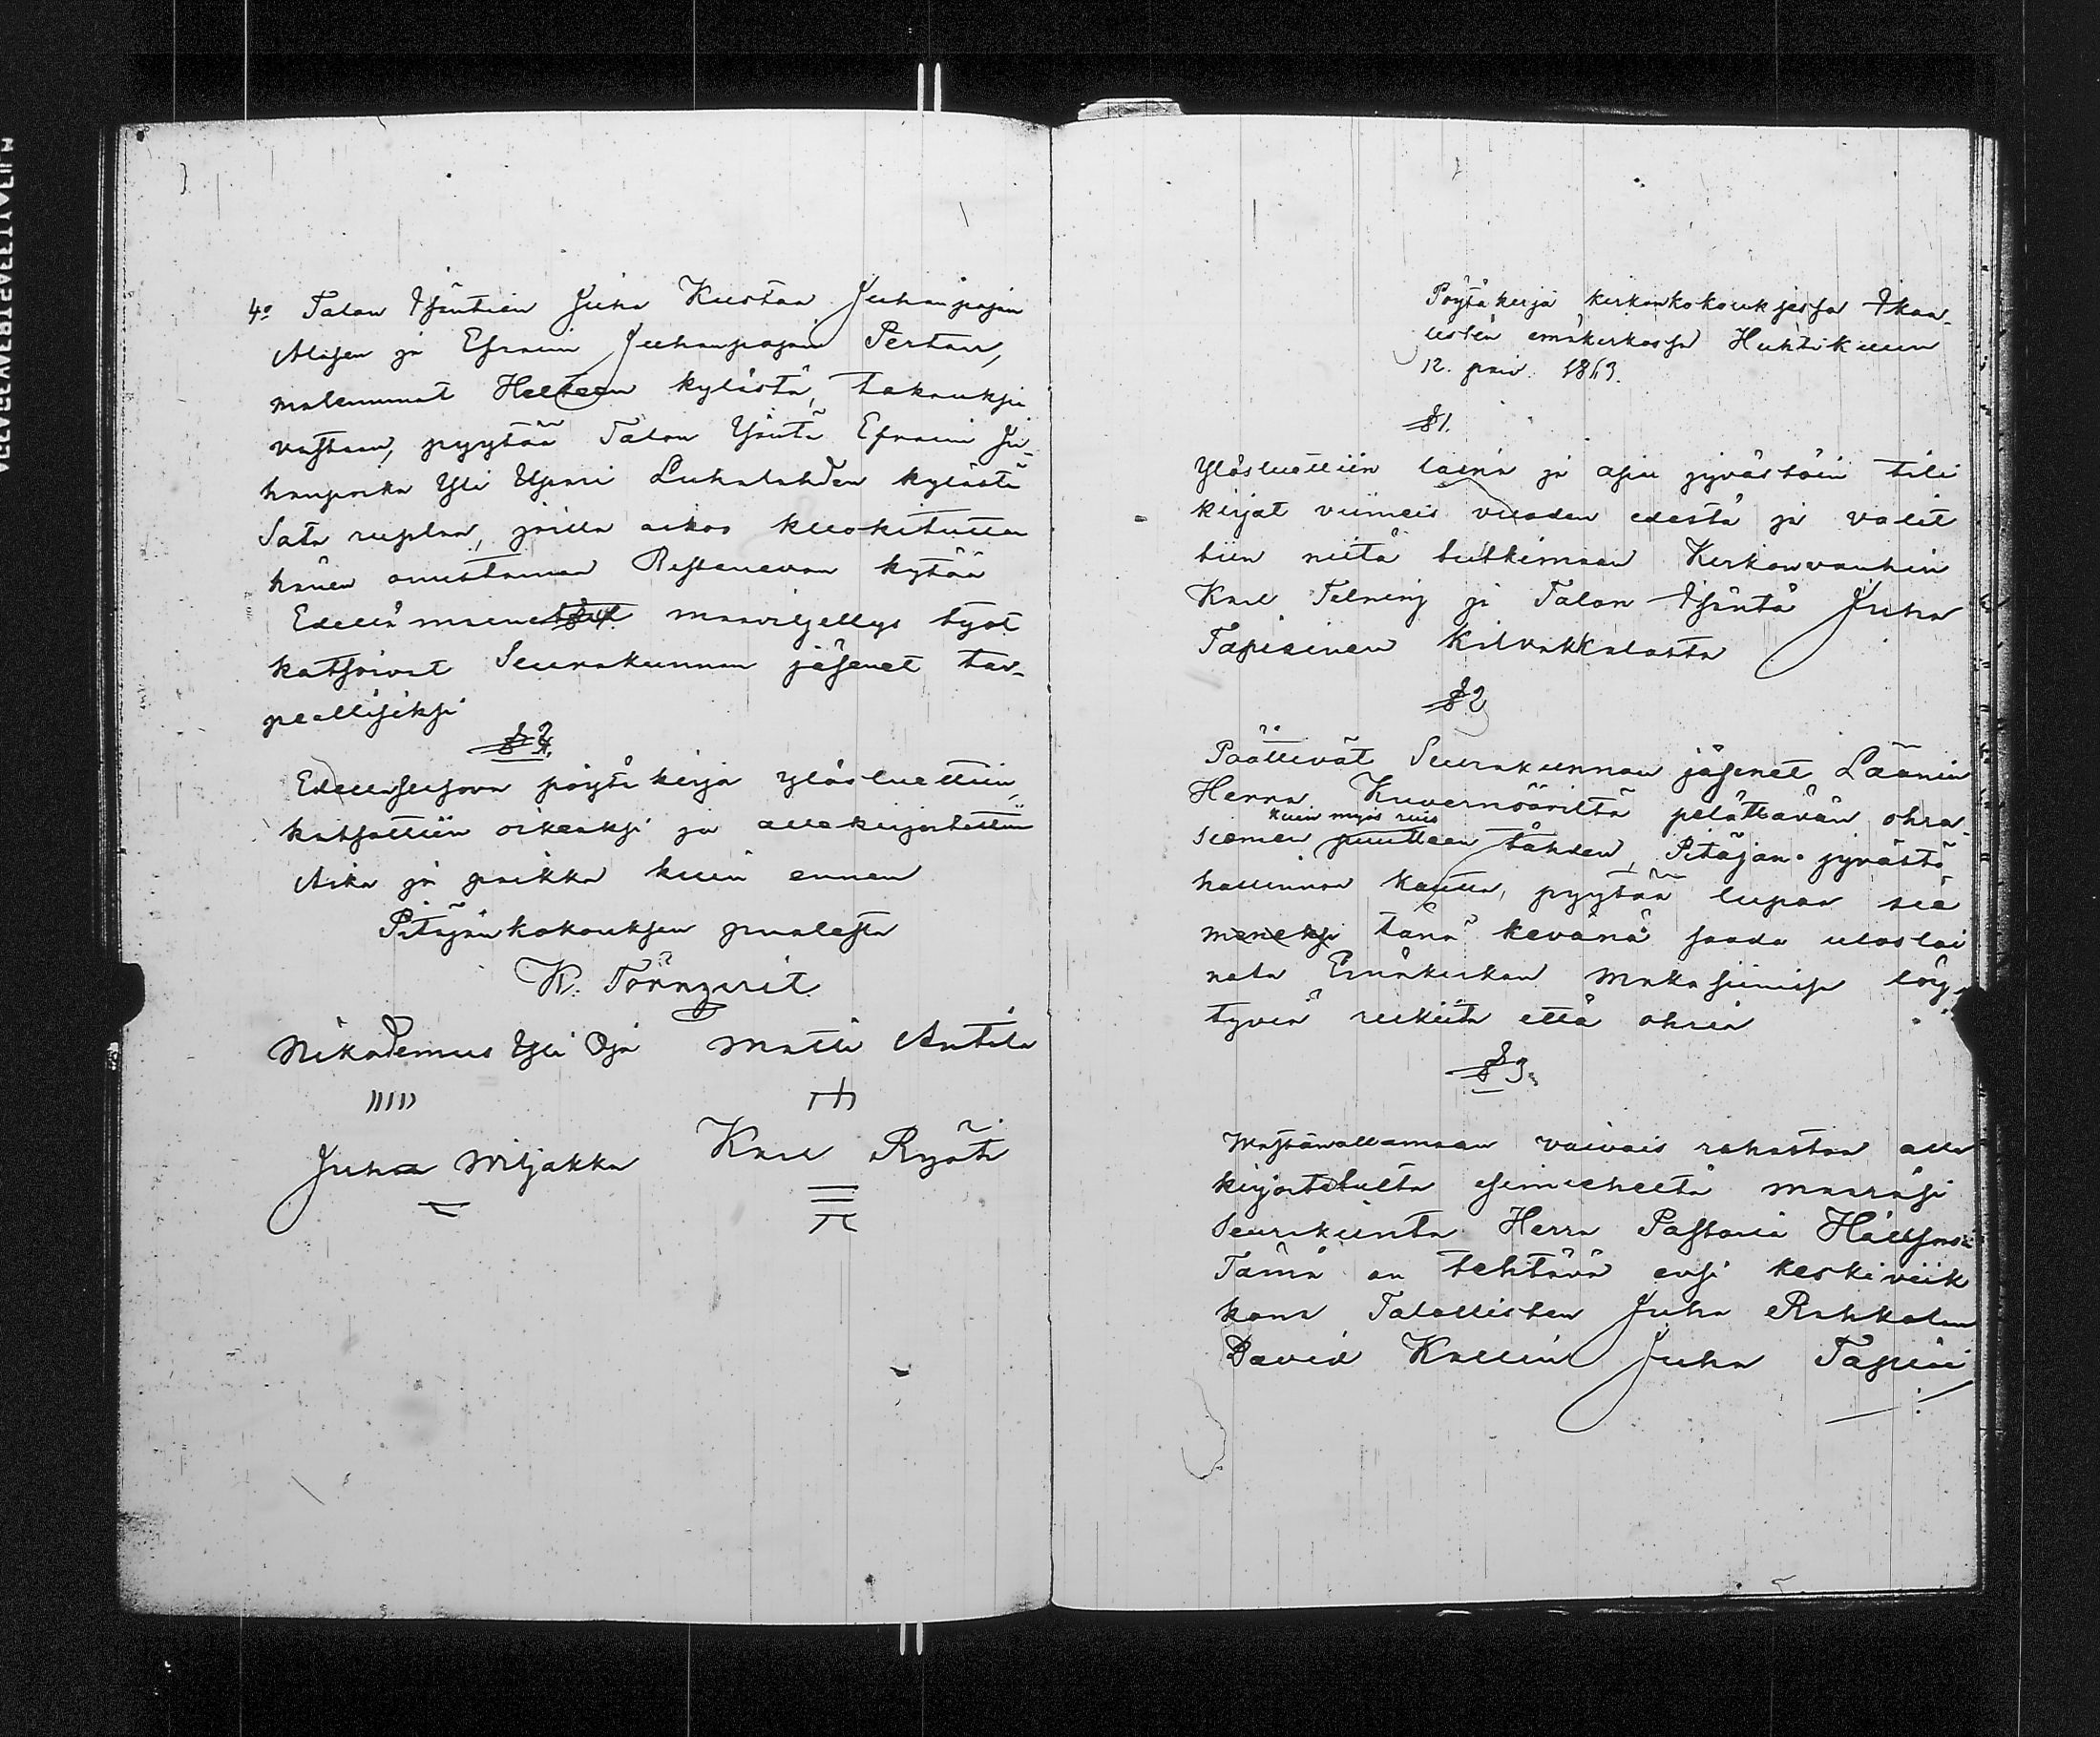 4o Talon Isäntien Juha Kustaa Juhanpojan
Alasen ja Efraim Juhanpojan Pertun,
molemmat Heiteen kylästä, takauksen
vastaan, pyytää Talon Isäntä Efraim Ju-
hanpoika Yli Uspari Luhalahden kylästä
Sata ruplaa, joilla aikoo kuokituttaa
hänen omistaman Ristanevan kytöä
Edellä maanviljellys työt
katsoivat Seurakunnan jäsenet tar-
peellisiksi
§ 2.
Edellä seisova pöytäkirja ylösluettiin,
katsottiin oikeaksi ja allekirjoitettiin
Aika ja paikka kuin ennen
Pitäjänkokouksen puolesta
K. Törnqvist
Nikodemus Yli Oja Matti Antila
Juha Wiljakka Karl Ryöti
Pöytäkirja kirkonkokouksessa Ikaa-
listen emäkirkossa Huhtikuun
12. päiv. 1863.
§ 1.
Ylösluettiin laina ja apu jyvästöin tili
kirjat viimeis vuoden edestä ja valit
tiin niitä tutkimaan Kirkonvanhin
Karl Telning ja Talon Isäntä Juha
Tapisinen Kilvakkalasta
§ 2
Päättivät Seurakunnan jäsenet Läänin
Herra Kuvernööriltä pelättävän ohra-
kuin myös ruis
siemen puutteen tähden, Pitäjän jyvästö
hallinnon kautta, pyytää lupaa sie
meneksi tänä kevänä saada ulos lai
nata Emäkirkon Makasiinissa löy-
tyviä rukiita että ohria
§ 3.
Wastaanottamaan vaivais rahastoa alla
kirjoitetulta esimieheltä määräsi
Seurakunta Herra Pastoria Hällfors
Tämä on tehtävä ensi keskiviik
kona Talollisten Juha Rahkolan
David Kallin Juha Tapiin